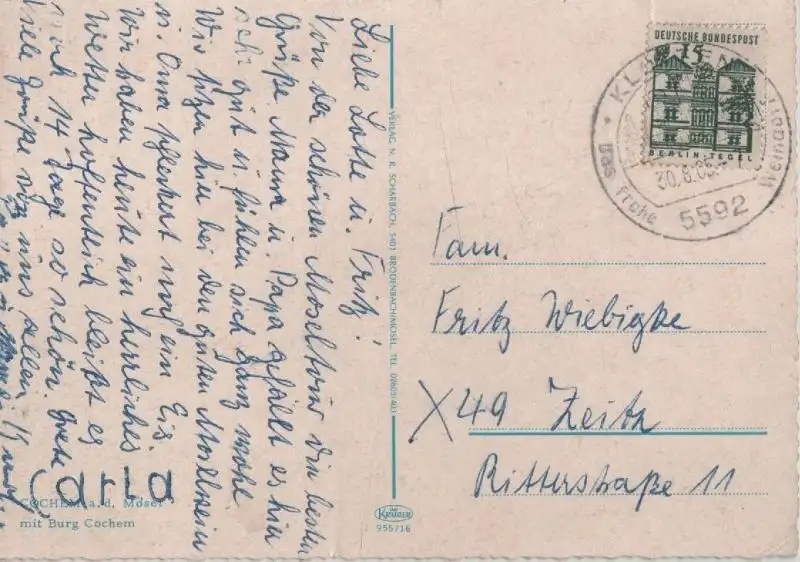 Liebe Lotte u. Fritz!
Von der schönen Moseltour die besten
Grüße. Mama u. Papa gefällt es hier
sehr gut u. fühlen sich ganz wohl.
Wir sitzen hier bei den guten Moselwein
u. Oma schleckert noch ein Eis.
Wir haben heute ein herrliches
Wetter hoffentlich bleibt es
noch 14 Tage so schön.
Viele Grüße von uns allen.
Carla
COCHEM a. d. Mosel
mit Burg Cochem
VERLAG N. R. SCHARBACH, 5401 BRODENBACH/MOSEL TEL.
KRÜGER
955/16
DEUTSCHE BUNDESPOST
15
BERLIN-TEGEL
Das frohe
30.8.65
5592
Fam.
Fritz Wiebigke
X49 Zeitz
Ritterstraße 11